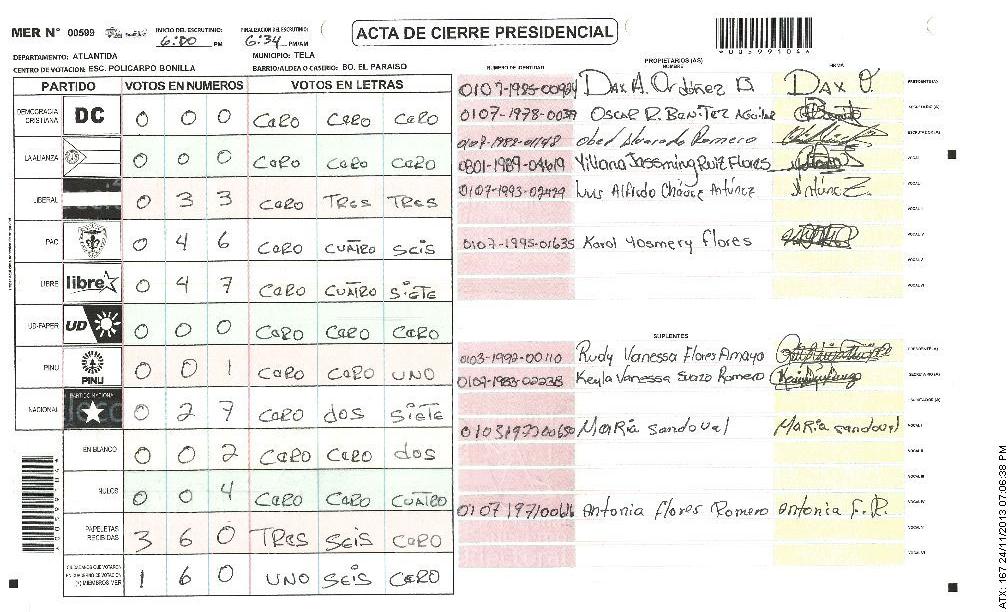 MER N° 00599 INICIO DEL ESCRUTINIO: 6:00 PM FINALIZACIÓN DEL ESCRUTINIO: 6:34 PM/AM
ACTA DE CIERRE PRESIDENCIAL
DEPARTAMENTO: ATLANTIDA MUNICIPIO: TELA
CENTRO DE VOTACION: ESC. POLICARPO BONILLA BARRIO/ALDEA O CASERIO: BO. EL PARAISO
PARTIDO VOTOS EN NUMEROS VOTOS EN LETRAS
DEMOCRACIA CRISTIANA DC 0 0 0 CERO CERO CERO
LA ALIANZA 0 0 0 CERO CERO CERO
LIBERAL 0 3 3 CERO TRES TRES
PAC 0 4 6 CERO CUATRO SEIS
LIBRE libre 0 4 7 CERO CUATRO SIETE
UD-FAPER UD 0 0 0 CERO CERO CERO
PINU PINU 0 0 1 CERO CERO UNO
NACIONAL PARTIDO NACIONAL 0 2 7 CERO dos SIETE
EN BLANCO 0 0 2 CERO CERO dos
NULOS 0 0 4 CERO CERO CUATRO
PAPELETAS RECIBIDAS 3 6 0 TRES SEIS CERO
CIUDADANOS QUE VOTARON EN CUADERNO DE VOTACION (+) MIEMBROS MER 1 6 0 UNO SEIS CERO
PROPIETARIOS (AS)
NUMERO DE IDENTIDAD NOMBRE FIRMA
Dax A. Ordoñez B. DAX O. PRESIDENTE(A)
OSCAR R. BENITEZ Aguilar SECRETARIO (A)
Obed Alvarado Romero ESCRUTADOR (A)
0801-1989-04619 Yiliana Jassming Ruiz Flores VOCAL I
0107-1993-02429 Luis Alfredo Chávez Antúnez Antúnez. VOCAL II
VOCAL III
0107-1995-01635 Karol Yosmery Flores VOCAL V
VOCAL VI
SUPLENTES
0103-1992-00110 Rudy Vanessa Flores Amaya PRESIDENTE(A)
0107-1983-02238 Keyla Vanessa Suazo Romero SECRETARIO (A)
ESCRUTADOR (A)
MaRia sandoval MaRia sandoval VOCAL I
VOCAL II
VOCAL III
Antonia Flores Romero Antonia F.R. VOCAL IV
VOCAL V
VOCAL VI
ATX: 167 24/11/2013 07:06:38 PM